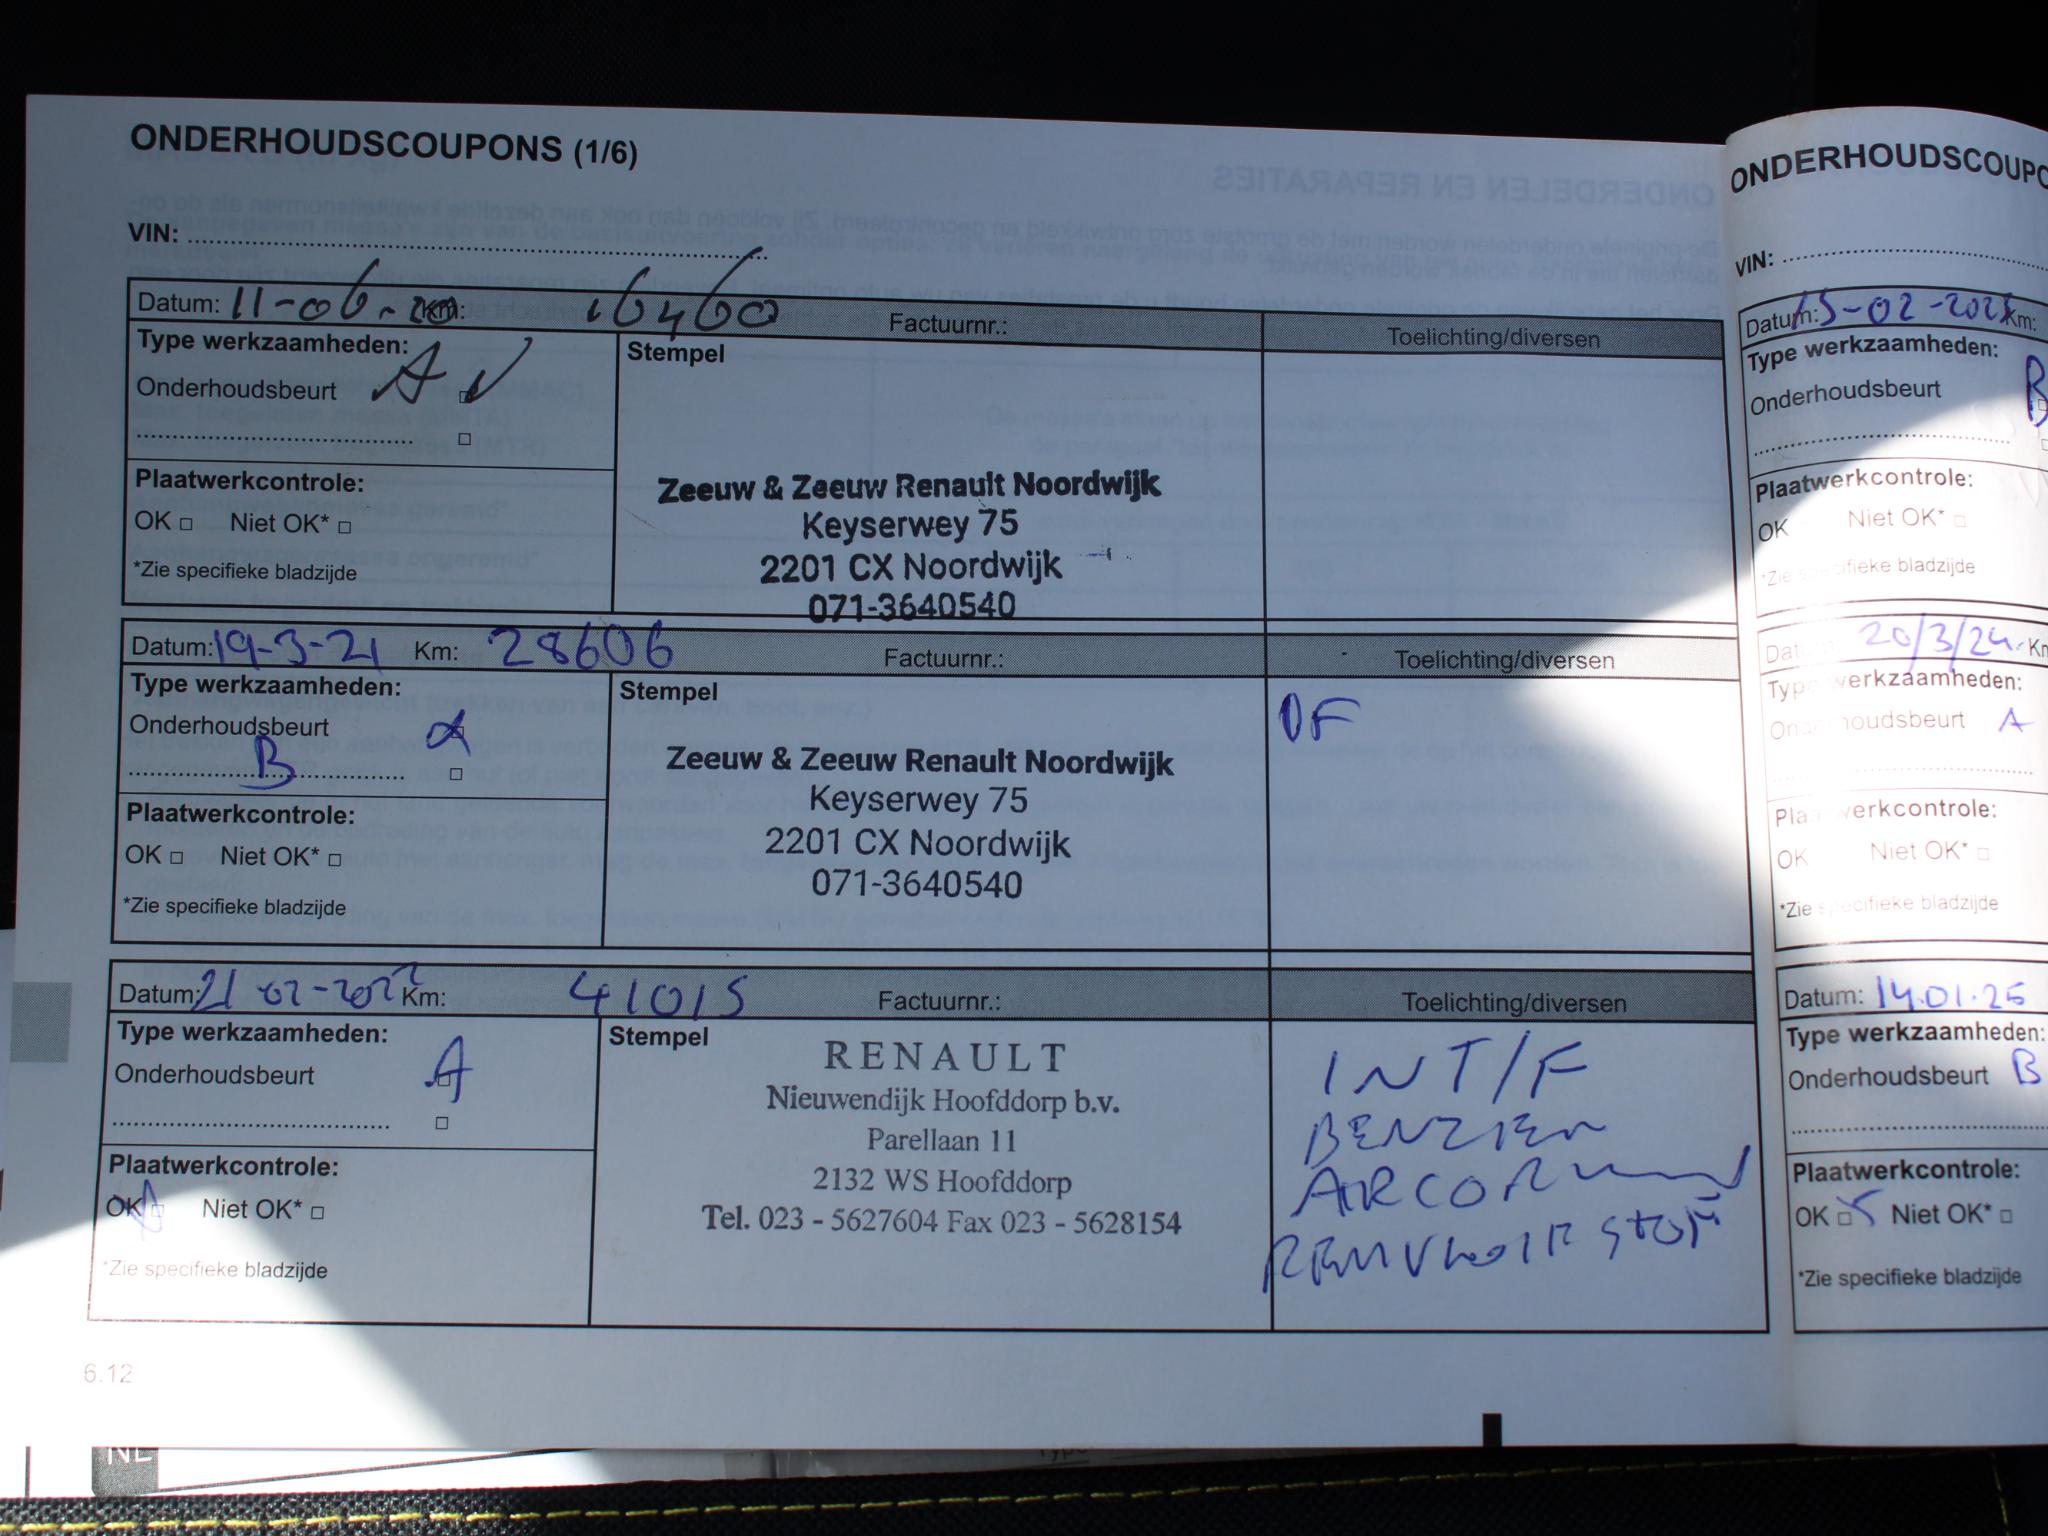 ONDERHOUDSCOUPONS (1/6)
VIN:
Datum: 11-06-20 Km: 16460 Factuurnr.: Toelichting/diversen
Type werkzaamheden:
Onderhoudsbeurt A
Stempel
Zeeuw & Zeeuw Renault Noordwijk
Keyserwey 75
2201 CX Noordwijk
071-3640540
Plaatwerkcontrole:
OK Niet OK*
*Zie specifieke bladzijde
Datum: 19-3-21 Km: 28606 Factuurnr.: Toelichting/diversen
Type werkzaamheden:
Onderhoudsbeurt
B
Stempel
Zeeuw & Zeeuw Renault Noordwijk
Keyserwey 75
2201 CX Noordwijk
071-3640540
OF
Plaatwerkcontrole:
OK Niet OK*
*Zie specifieke bladzijde
Datum: 21-02-2022 Km: 41015 Factuurnr.: Toelichting/diversen
Type werkzaamheden:
Onderhoudsbeurt A
Stempel
RENAULT
Nieuwendijk Hoofddorp b.v.
Parellaan 11
2132 WS Hoofddorp
Tel. 023 - 5627604 Fax 023 - 5628154
INT/F
BENZIEN
REMVLOEISTOF
Plaatwerkcontrole:
OK Niet OK*
*Zie specifieke bladzijde
6.12
NL
ONDERHOUDSCOUPO
VIN:
Datum: 15-02-2023 Km:
Type werkzaamheden:
Onderhoudsbeurt B
Plaatwerkcontrole:
OK Niet OK*
*Zie specifieke bladzijde
Datum: 20/3/24 Km
Type werkzaamheden:
Onderhoudsbeurt A
Plaatwerkcontrole:
OK Niet OK*
*Zie specifieke bladzijde
Datum: 14.01.25
Type werkzaamheden:
Onderhoudsbeurt B
Plaatwerkcontrole:
OK Niet OK*
*Zie specifieke bladzijde